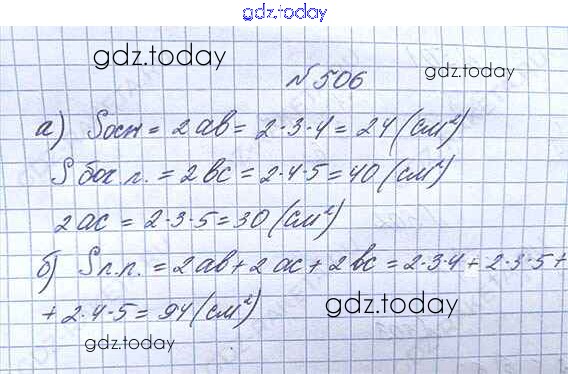 gdz.today
gdz.today
gdz.today
№506
а) Sосн = 2ab = 2·3·4 = 24 (см²)
S бок.п. = 2bc = 2·4·5 = 40 (см²)
2ac = 2·3·5 = 30 (см²)
б) Sп.п. = 2ab + 2ac + 2bc = 2·3·4 + 2·3·5 +
+ 2·4·5 = 94 (см²)
gdz.today
gdz.today